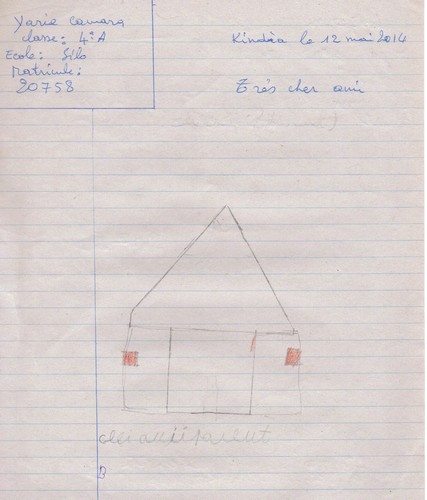 Yarie Camara
classe: 4e A
Ecole: Silo
Matricule:
20758
Kindia le 12 mai 2014
Très cher ami